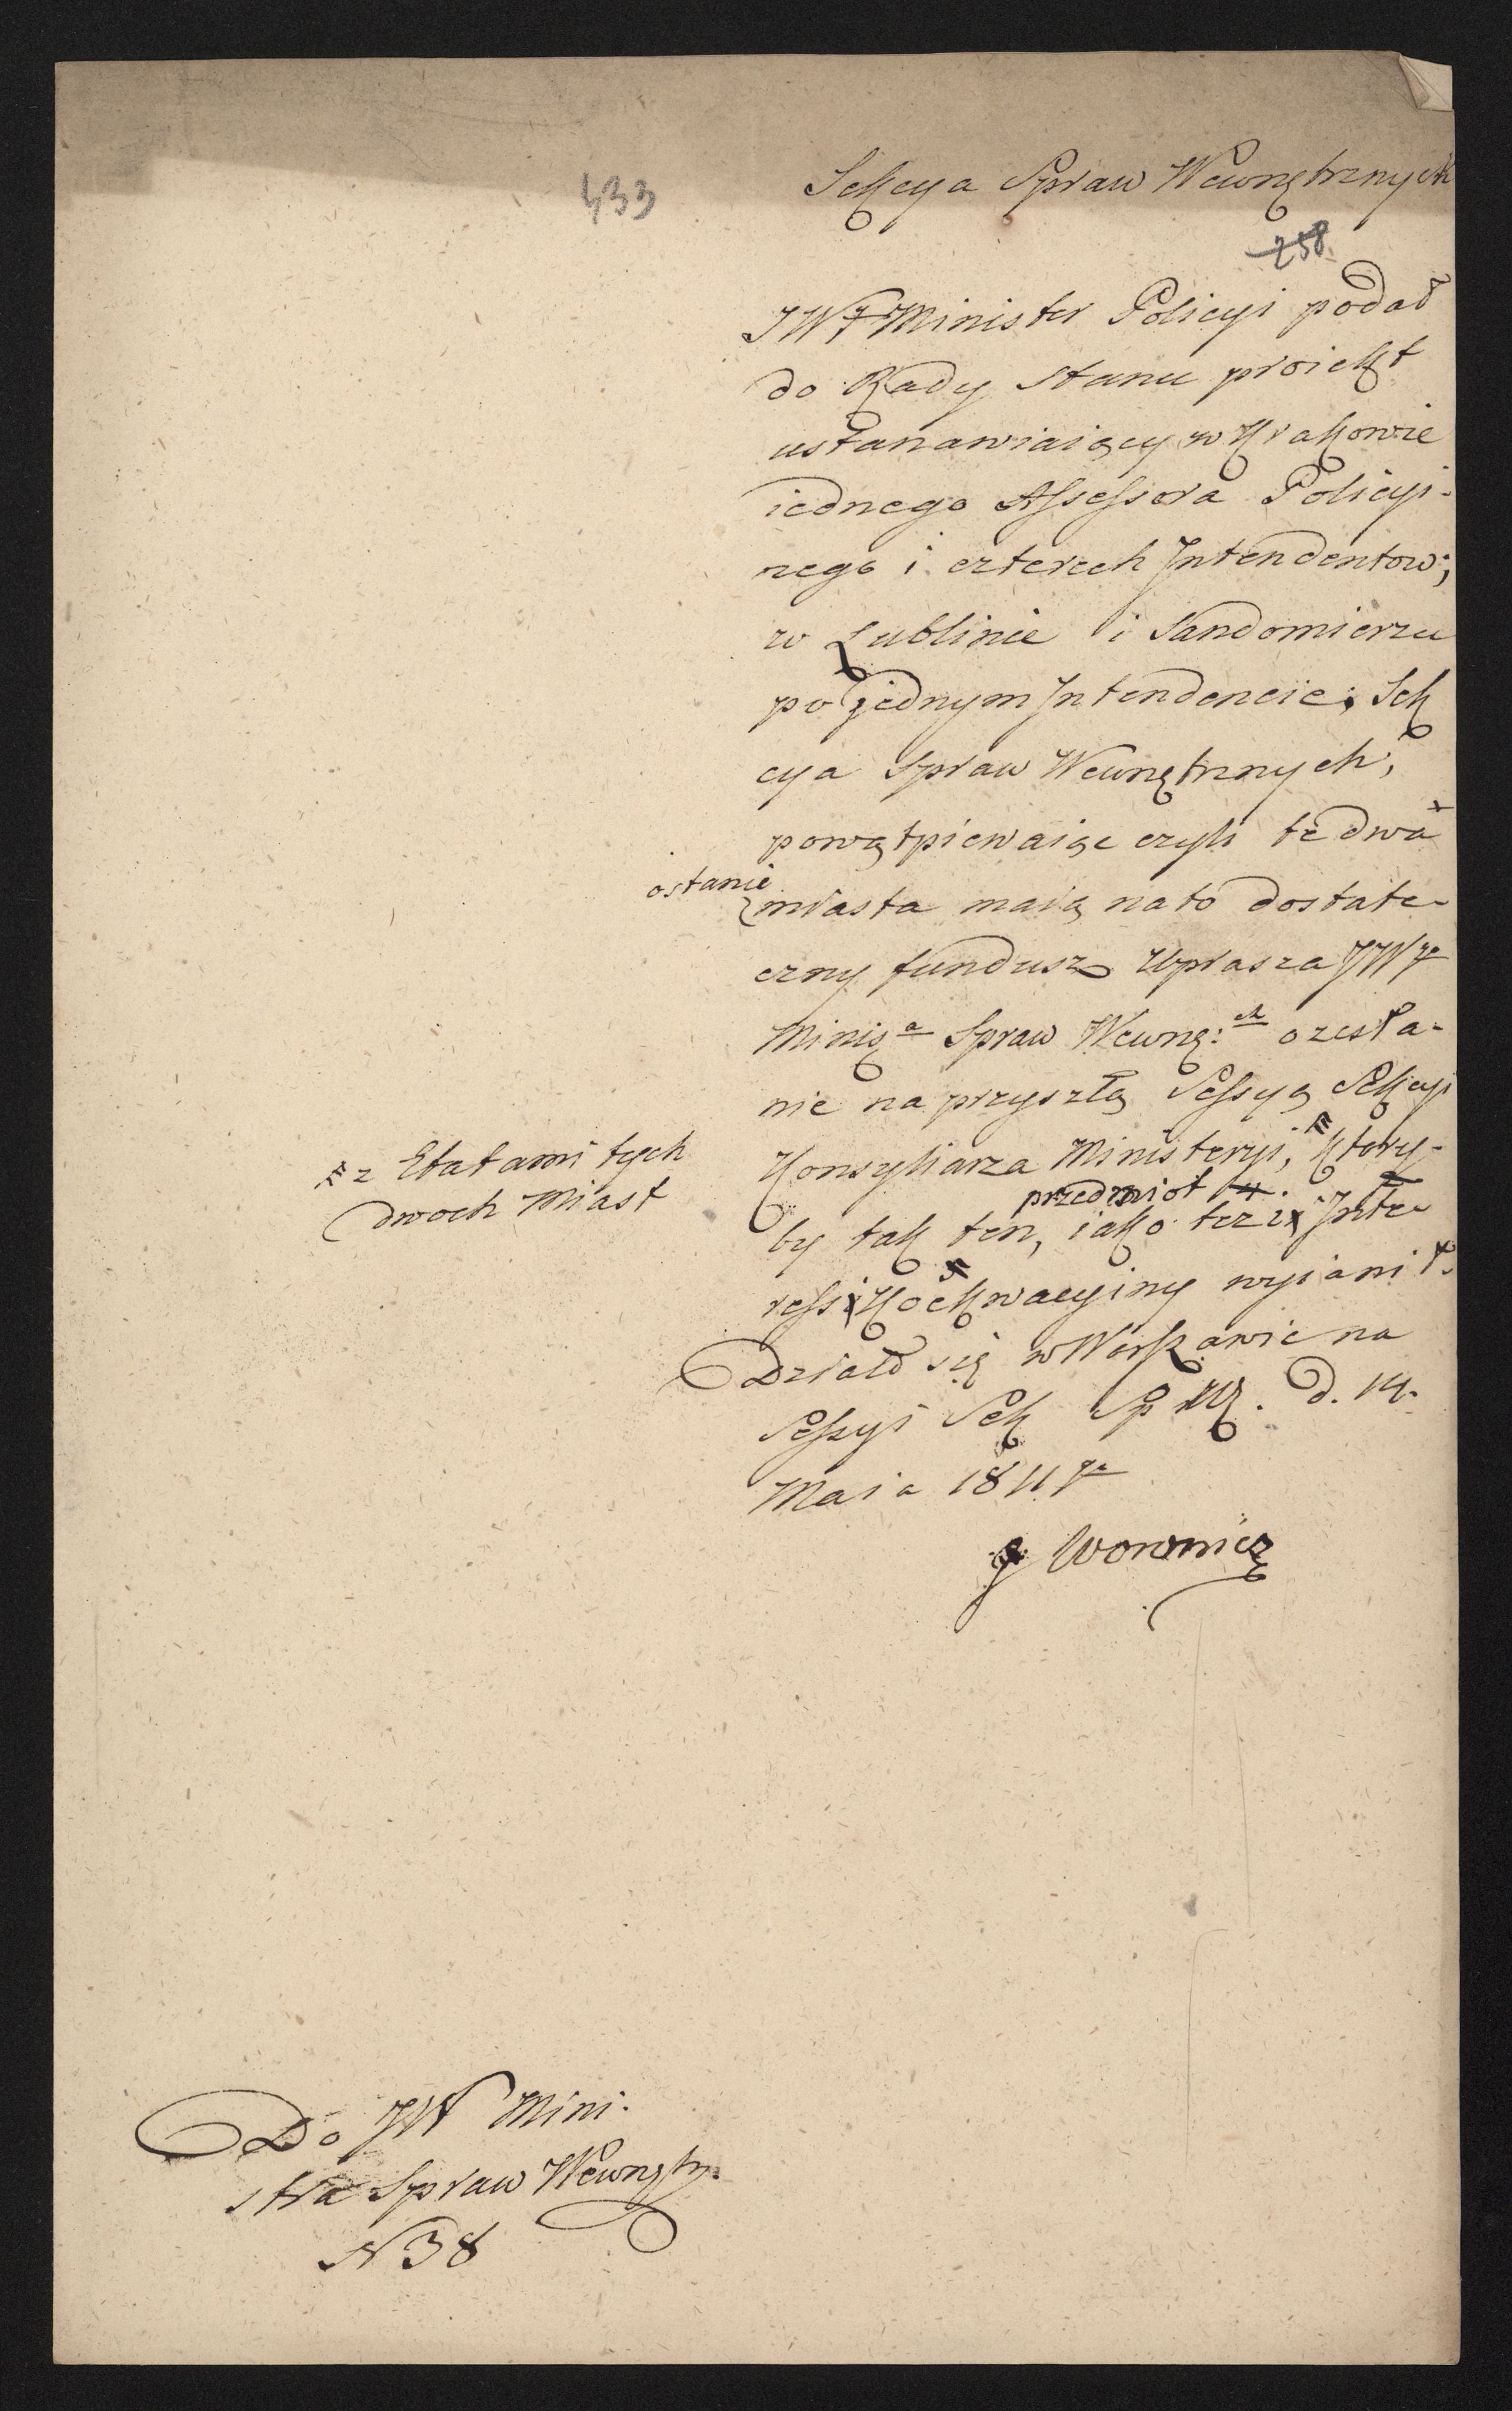 433
Sekcya Spraw Wewnętrznych
258
JW Minister Policyi podał
do Rady Stanu proiekt
ustanawiaiący w Krakowie
iednego Assessora Policyi-
nego i czterech Intendentow;
w Lublinie i Sandomierzu
po jednym Intendencie; Sek
cya Spraw Wewnętrznych,
powątpiewaiąc czyli te dwa
ostanie
miasta maią na to dostate-
czny fundusz uprasza JWgo
Minisa Spraw Wewnę:ch o zesła-
nie na przyszłą Sessyą Sekcyi
Konsyliarza Ministeryi, # ktory-
# z Etatami tych
dwoch Miast
przedmiot
by tak ten, iako też i Inte-
ress Kwacyiny wyiawił.
Działo się w Warszawie na
Sessyi Sek Sp W. d. 14.
Maia 1811 go
J Woronicz
Do JW Mini-
stra Spraw Wewnętrz.
N 38